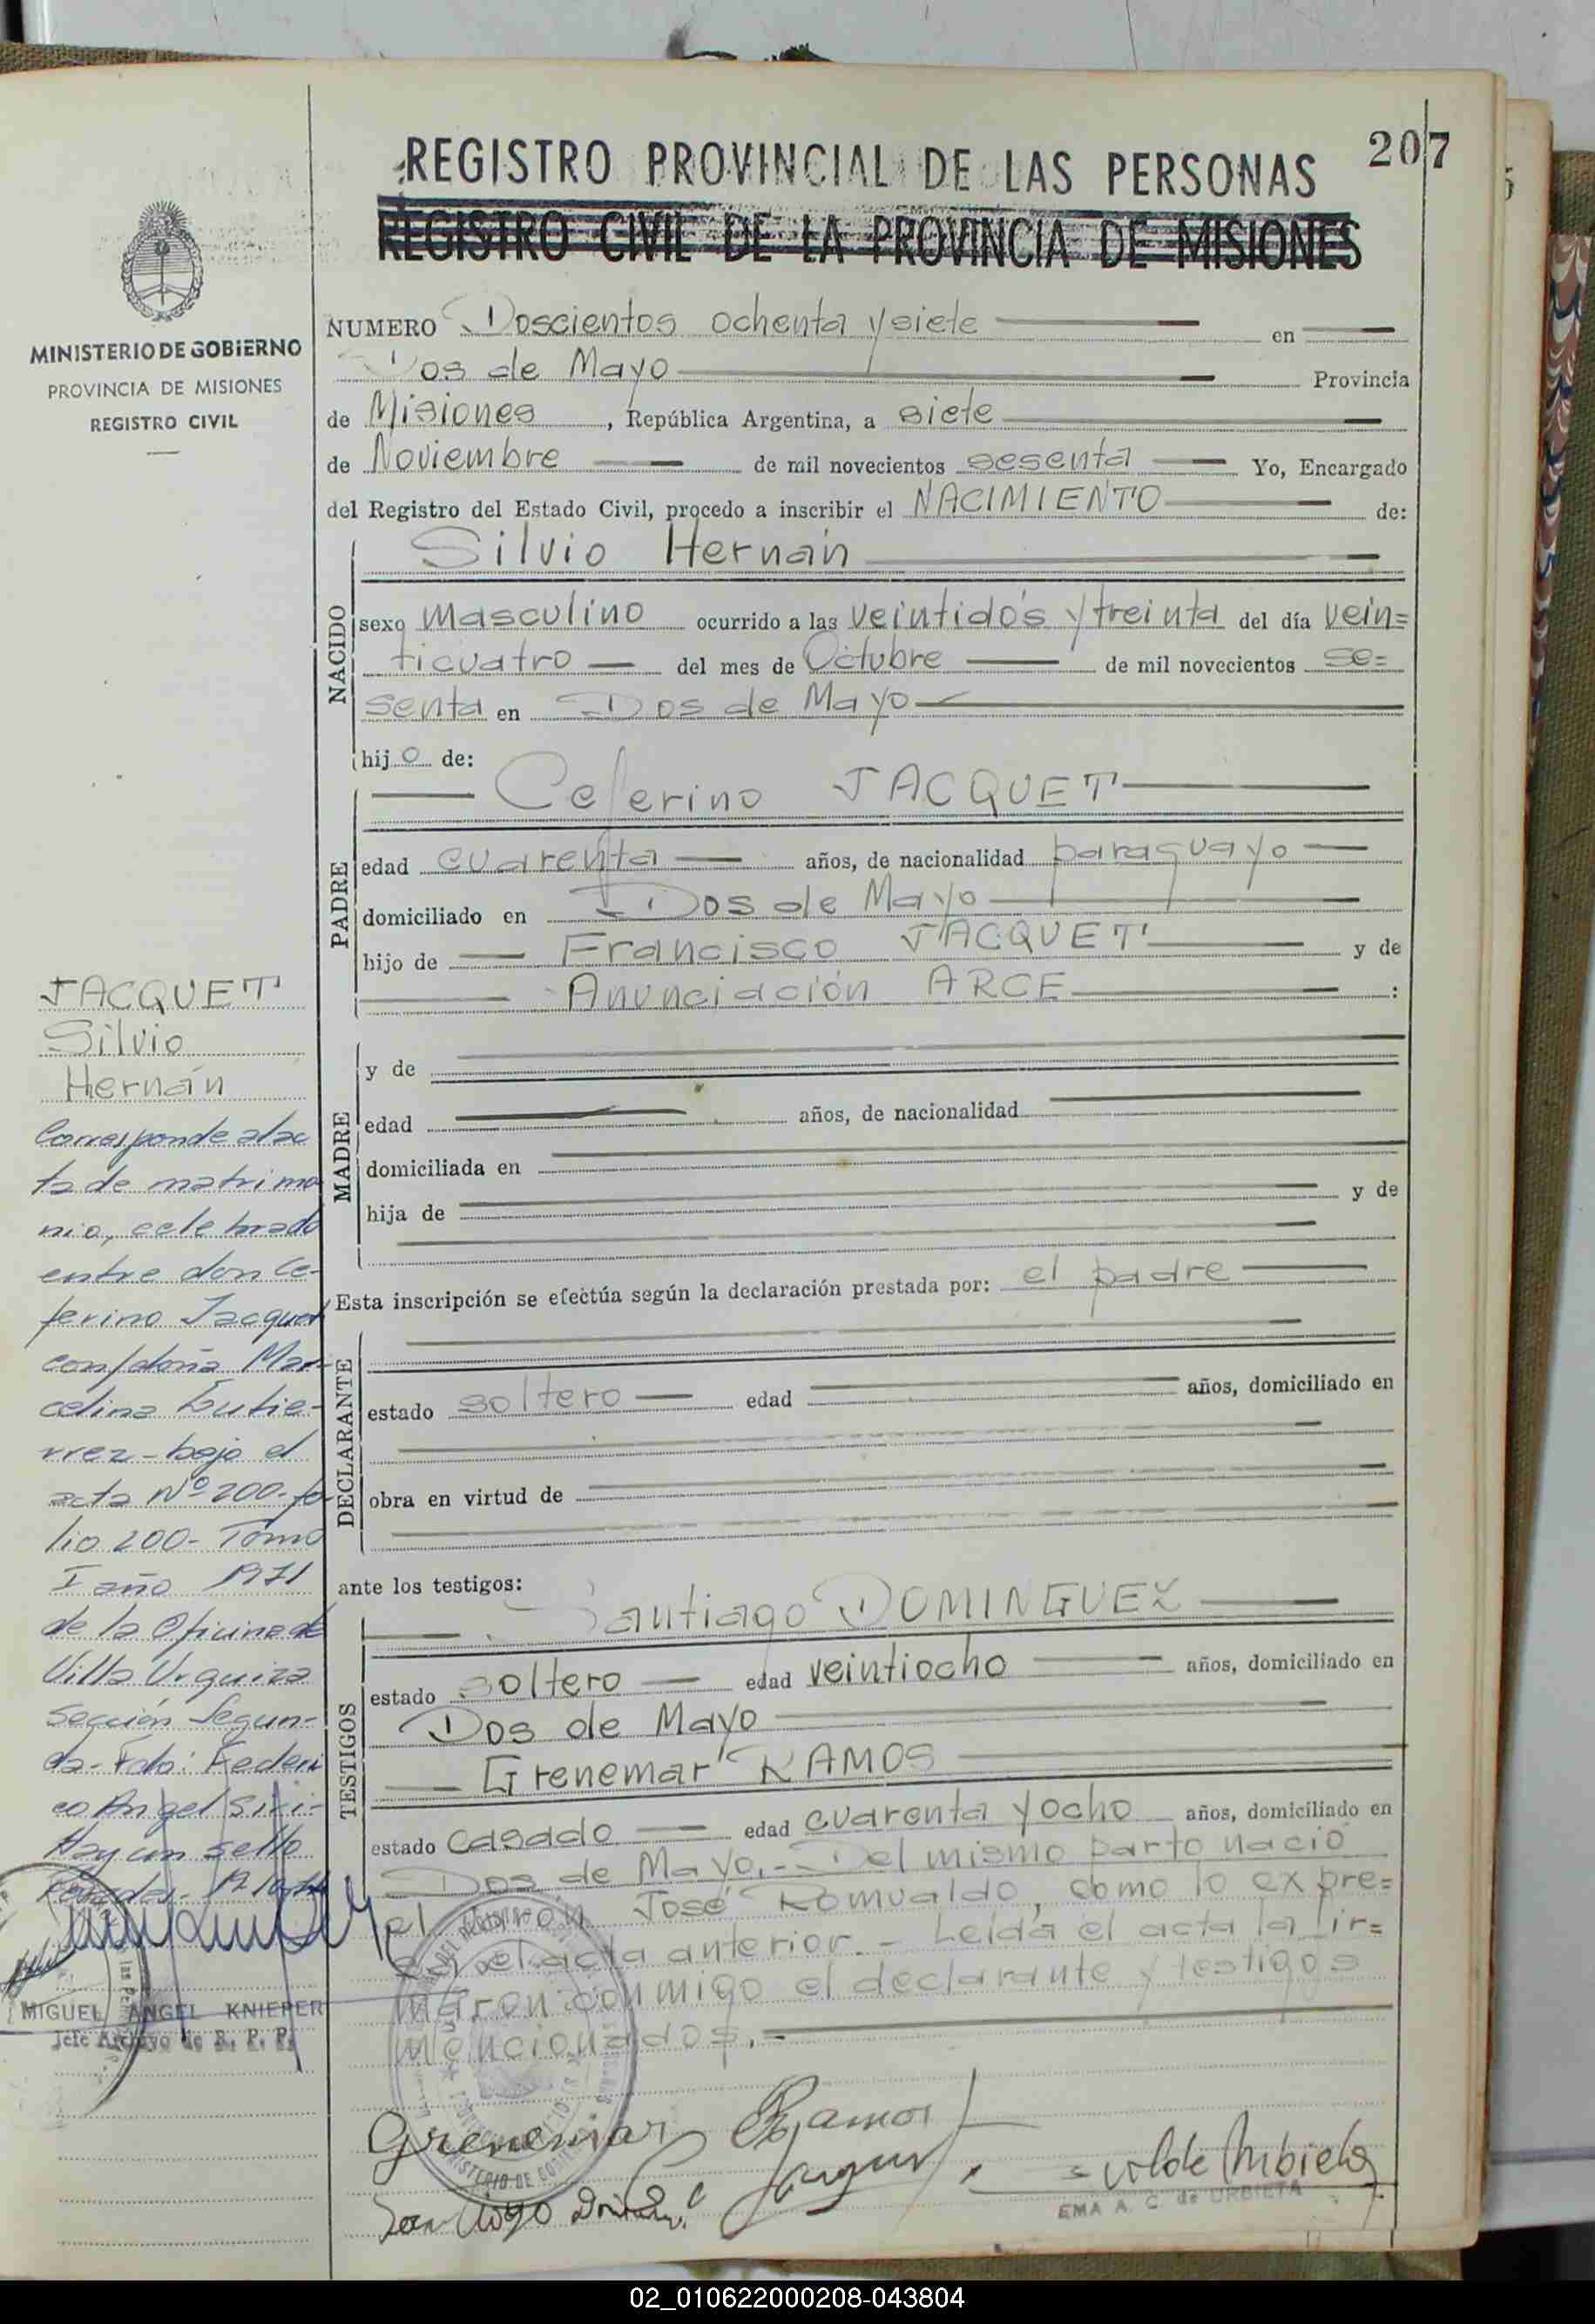 207
REGISTRO PROVINCIAL DE LAS PERSONAS
REGISTRO CIVIL DE LA PROVINCIA DE MISIONES
MINISTERIO DE GOBIERNO
PROVINCIA DE MISIONES
REGISTRO CIVIL
NUMERO Doscientos ochenta y siete en
Dos de Mayo Provincia
de Misiones, República Argentina, a siete
de Noviembre de mil novecientos sesenta Yo, Encargado
del Registro del Estado Civil, procedo a inscribir el NACIMIENTO de:
NACIDO
Silvio Hernán
sexo masculino ocurrido a las veintidós y treinta del día vein=
ticuatro del mes de Octubre de mil novecientos se=
senta en Dos de Mayo
hijo de:
PADRE
Ceferino JACQUET
edad cuarenta años, de nacionalidad paraguayo
domiciliado en Dos de Mayo
hijo de Francisco JACQUET y de
Anunciación ARCE :
MADRE
y de
edad años, de nacionalidad
domiciliada en
hija de y de
Esta inscripción se efectúa según la declaración prestada por: el padre
DECLARANTE
estado soltero edad años, domiciliado en
obra en virtud de
ante los testigos:
TESTIGOS
Santiago DOMINGUEZ
estado soltero edad veintiocho años, domiciliado en
Dos de Mayo
Grenemar RAMOS
estado casado edad cuarenta y ocho años, domiciliado en
Dos de Mayo.- Del mismo parto nació
el varón José Romualdo, como lo expre=
sa el acta anterior.- Leída el acta la fir=
maron conmigo el declarante y testigos
mencionados.=
Grenemar Ramos
EMA A. C. de URBIETA
JACQUET
Silvio
Hernán
Corresponde al ac
ta de matrimo
nio, celebrado
entre don Ce-
ferino Jacquet
con doña Mar-
celina Gutie-
rrez - bajo el
acta Nº 200- fo-
lio 200- Tomo
I año 1971
de la Oficina de
Villa Urquiza
Sección Segun-
da- Fdo: Federi
co Angel
Hay un sello
MIGUEL ANGEL KNIEPER
Jefe Archivo de R. P. P.
02_010622000208-043804